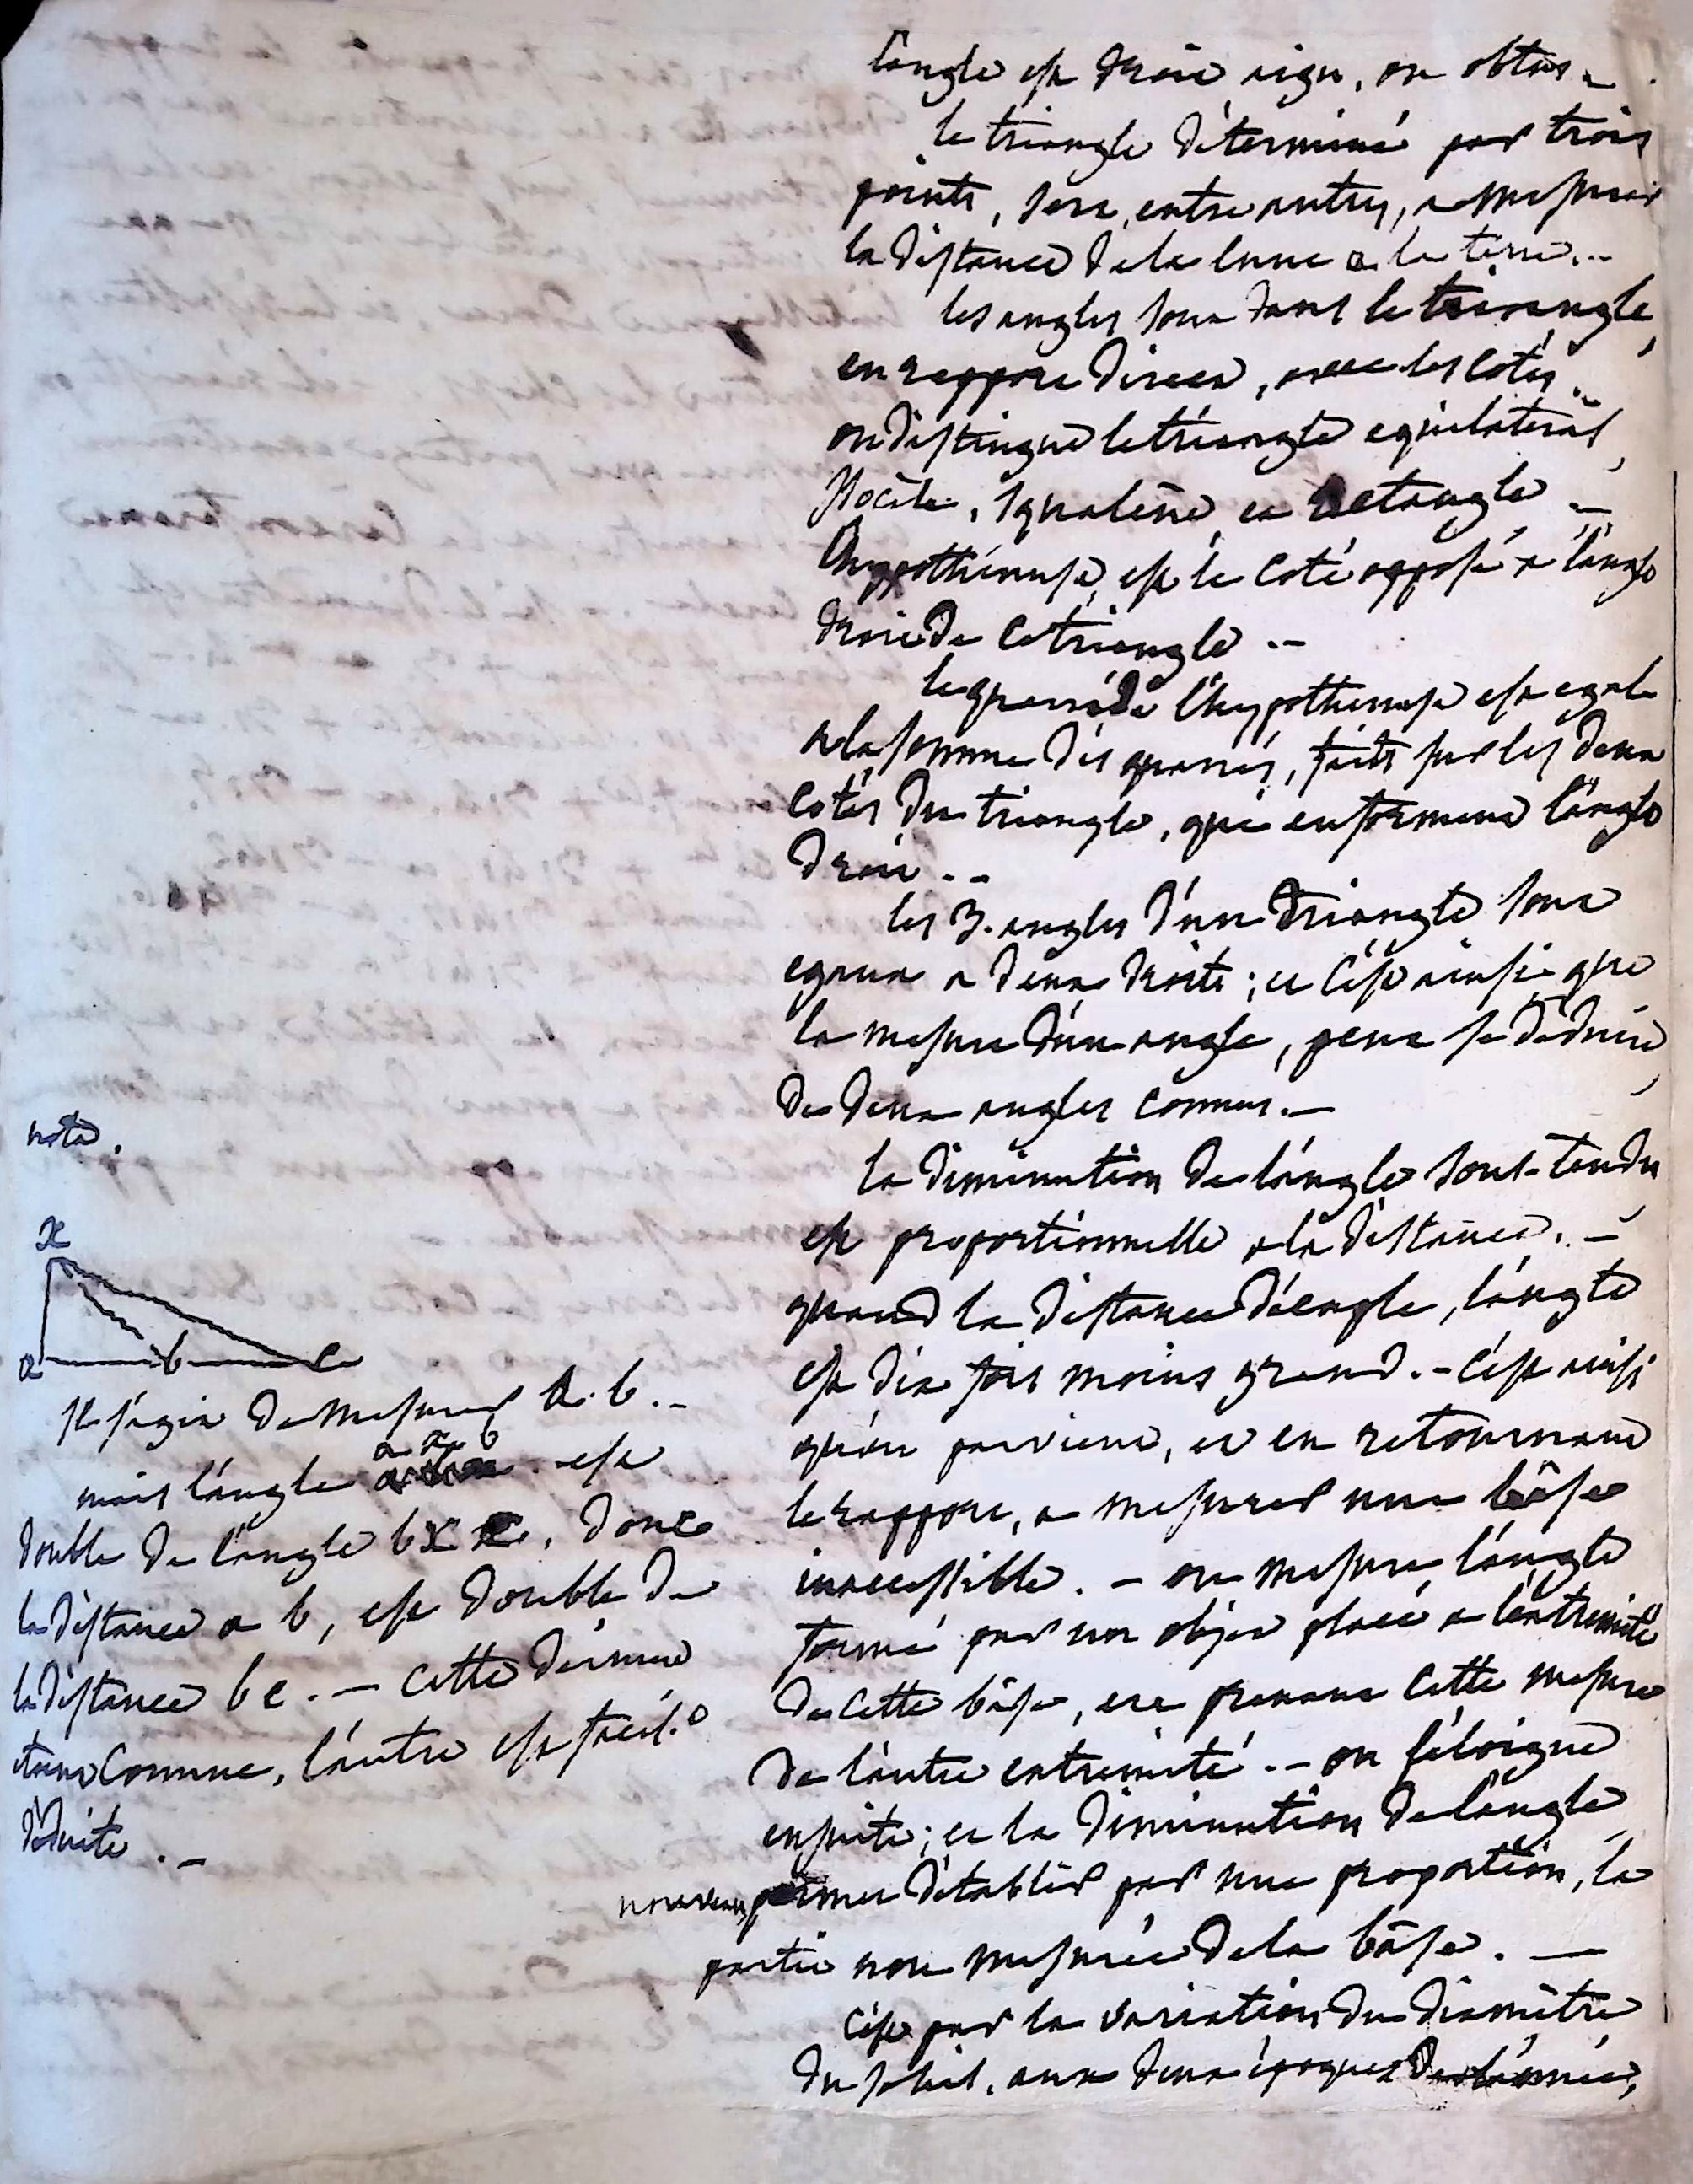 l'angle est droit aigu, ou obtus. -
le triangle déterminé par trois
points, sert, entre autres, a mesurer
la distance de la lune a la terre. --
les angles sont dans le triangle,
en rapport direct, avec les cotés. -
on distingue le triangle equilateral,
isocéle, squaléne, et rectangle -
l'hyppothénuse, est le coté opposé a l'angle
droit de ce triangle. --
le quarré de l'hyppothenuse est egale
a la somme des quarrés, faits sur les deux
cotés du triangle, qui enferment l'angle
droit. --
les 3. angles d'un triangle sont
egaux a deux droits ; et c'est ainsi que
la mesure d'un angle, peut se déduire,
de deux angles connus. -
la diminution de l'angle sous-tendu,
est proportionnelle a la distance. -
quand la distance décuple, l'angle
est dix fois moins grand. - c'est ainsi
qu'on parvient, et en retournant
le rapport, a mesurer une bâse
inaccessible. - on mesure l'angle
formé par un objet placé a l'extremité
de cette bâse, en prenant cette mesure
de l'autre extremité. -- on s'éloigne
ensuite ; et la diminution de l'angle
permet d'établir par une proportion, la
partie non mesurée de la bâse. -
c'est par la variation du diamétre
du soleil, aux deux époques de l'année,
nota.
x
a b c
il s'agit de mesurer a. b. --
mais l'angle a x b est
double de l'angle b x c, donc
la distance a b, est double de
la distance b c. - cette derniere
etant connue, l'autre est facile
déduite. -